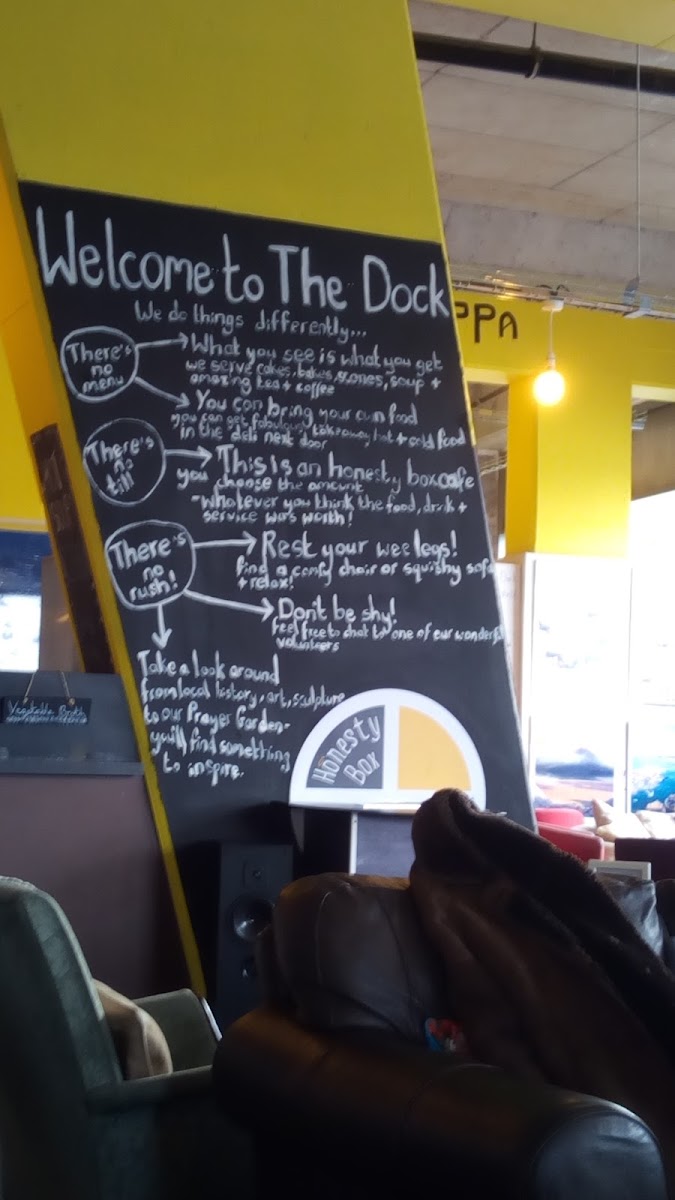 Welcome to The Dock
We do things differently...
There's
no
menu
What you see is what you get
we serve cakes, bakes, scones, soup +
amazing tea + coffee
You can bring your own food
you can get fabulous takeaway hot + cold food
in the deli next door
There's
no
till
This is an honesty box cafe
you choose the amount
- whatever you think the food, drink +
service was worth!
There's
no
rush!
Rest your wee legs!
find a comfy chair or squishy sofa
+ relax!
Dont be shy!
feel free to chat to one of our wonderful
volunteers
Take a look around
from local history, art, sculpture
to our Prayer Garden-
you'll find something
to inspire.
Honesty
Box
PPA
Vegetable Broth